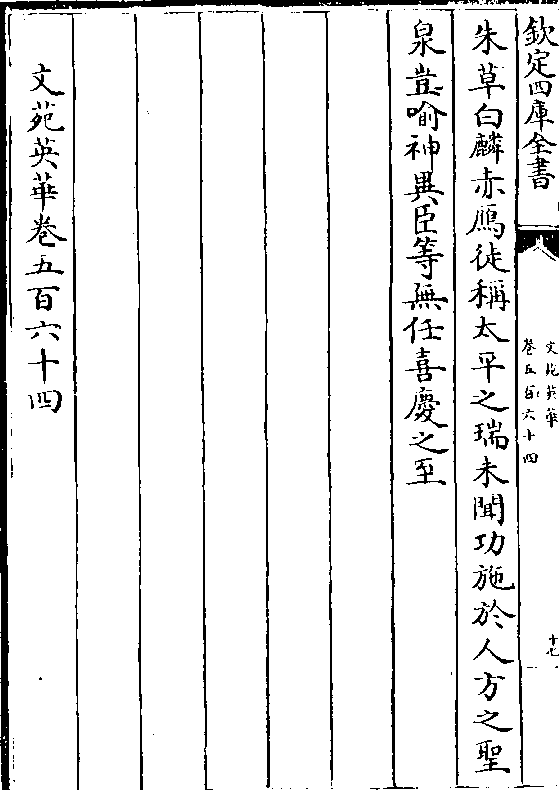 欽定四庫全書
文苑英華
卷五百六十四
十七
朱草白麟赤鴈徒稱太平之瑞未聞功施於人方之聖
泉豈喻神異臣等無任喜慶之至
文苑英華卷五百六十四